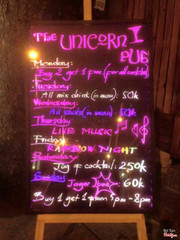 The UNICORN
PUB
Monday:
Buy 2 get 1 free (per all cocktail)
Tuesday
All mix drink (in menu) 50k
Wednesday:
All shots (in menu) 50k
Thursday
LIVE MUSIC
Friday
RAINBOW NIGHT
Saturday
Jug of cocktail: 250k
Sunday
Jager 60k
Buy 1 get 1 from 5pm - 8pm